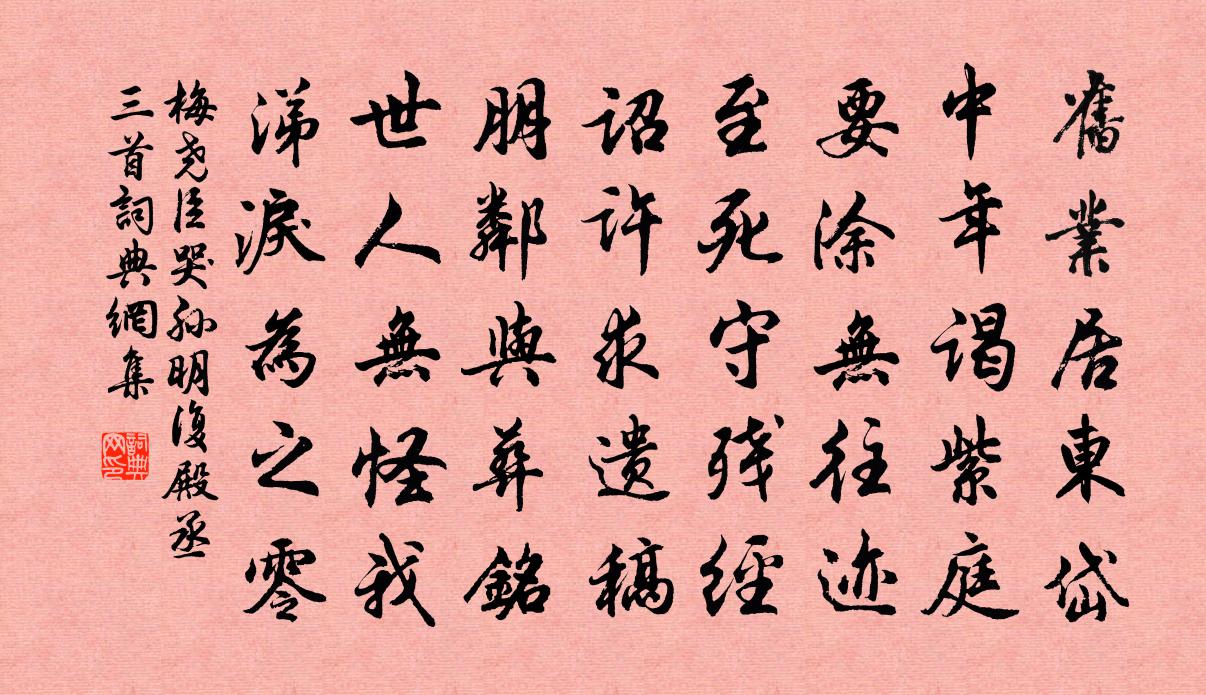 舊業居東岱
中年謁紫庭
要除無往迹
至死守残經
詔許求遗稿
朋鄰與葬銘
世人無怪我
涕淚為之零
梅尧臣哭孙明復殿丞
三首詞典網集
詞典网印